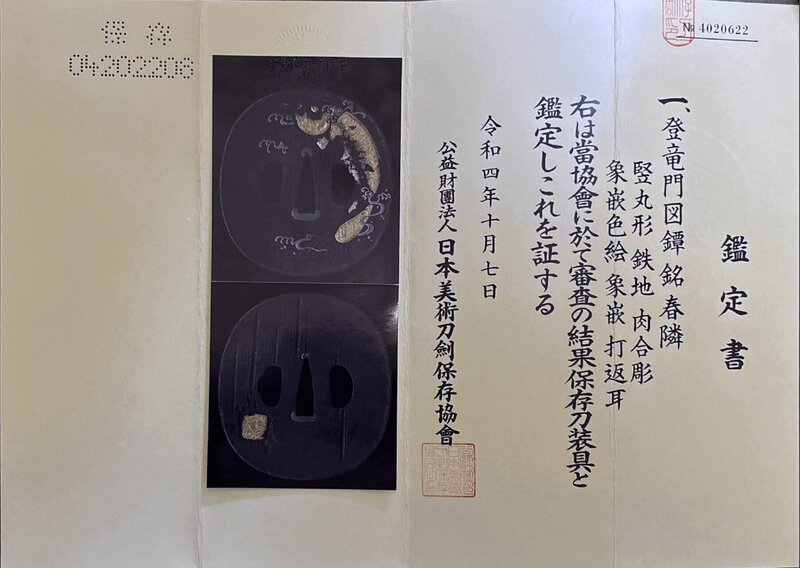 保存
04202206
№ 4020622
鑑定書
一、登竜門図鐔 銘 春隣
竪丸形 鉄地 肉合彫
象嵌色絵 象嵌 打返耳
右は當協會に於て審査の結果保存刀装具と
鑑定しこれを証する
令和四年十月七日
公益財團法人 日本美術刀劍保存協會